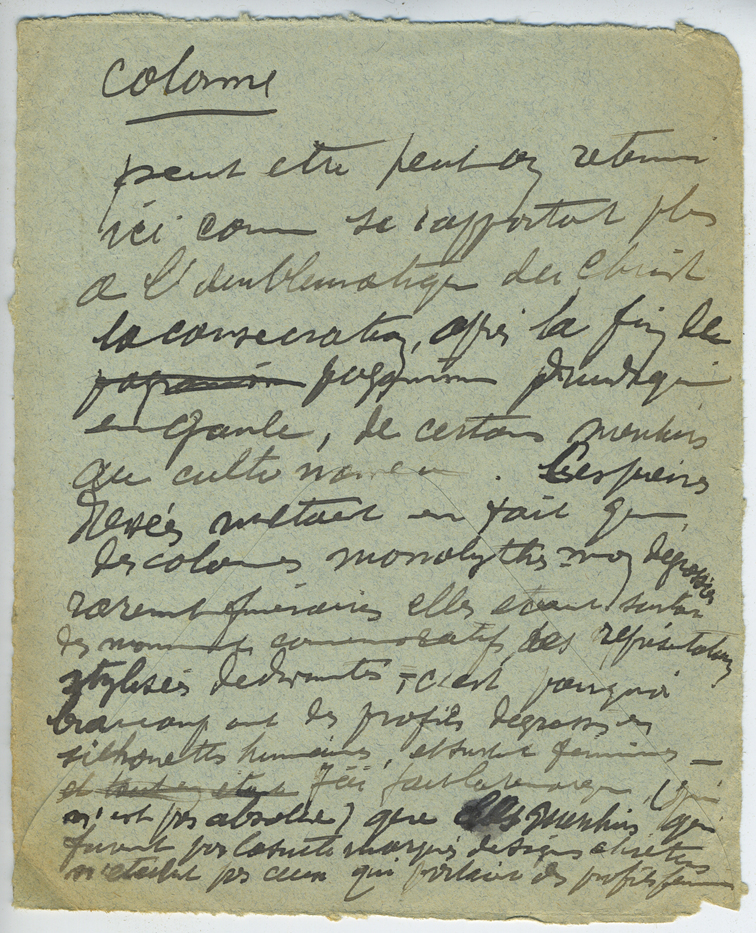 colonne
peut etre peut on retenir
ici comme se rapportant plus
a l'emblematique du Christ
la consecration, après la fin de
paganisme druidique
en Gaule, de certains menhirs
au culte nouveau. Ces pierres
levées n'étant en fait que
des colonnes monolythes non dégrossies
rarement funéraires elles etaient surtout
des monuments commemoratifs, des représentations
stylisées de divinités - c'est pourquoi
beaucoup ont des profils degrossis en
silhouettes humaines, et surtout feminines -
et J'ai fait la remarque, (qui
n'est pas absolue) que les menhirs qui
furent par la suite marqués de signes chrétiens
n'étaient pas ceux qui portaient des profils feminins